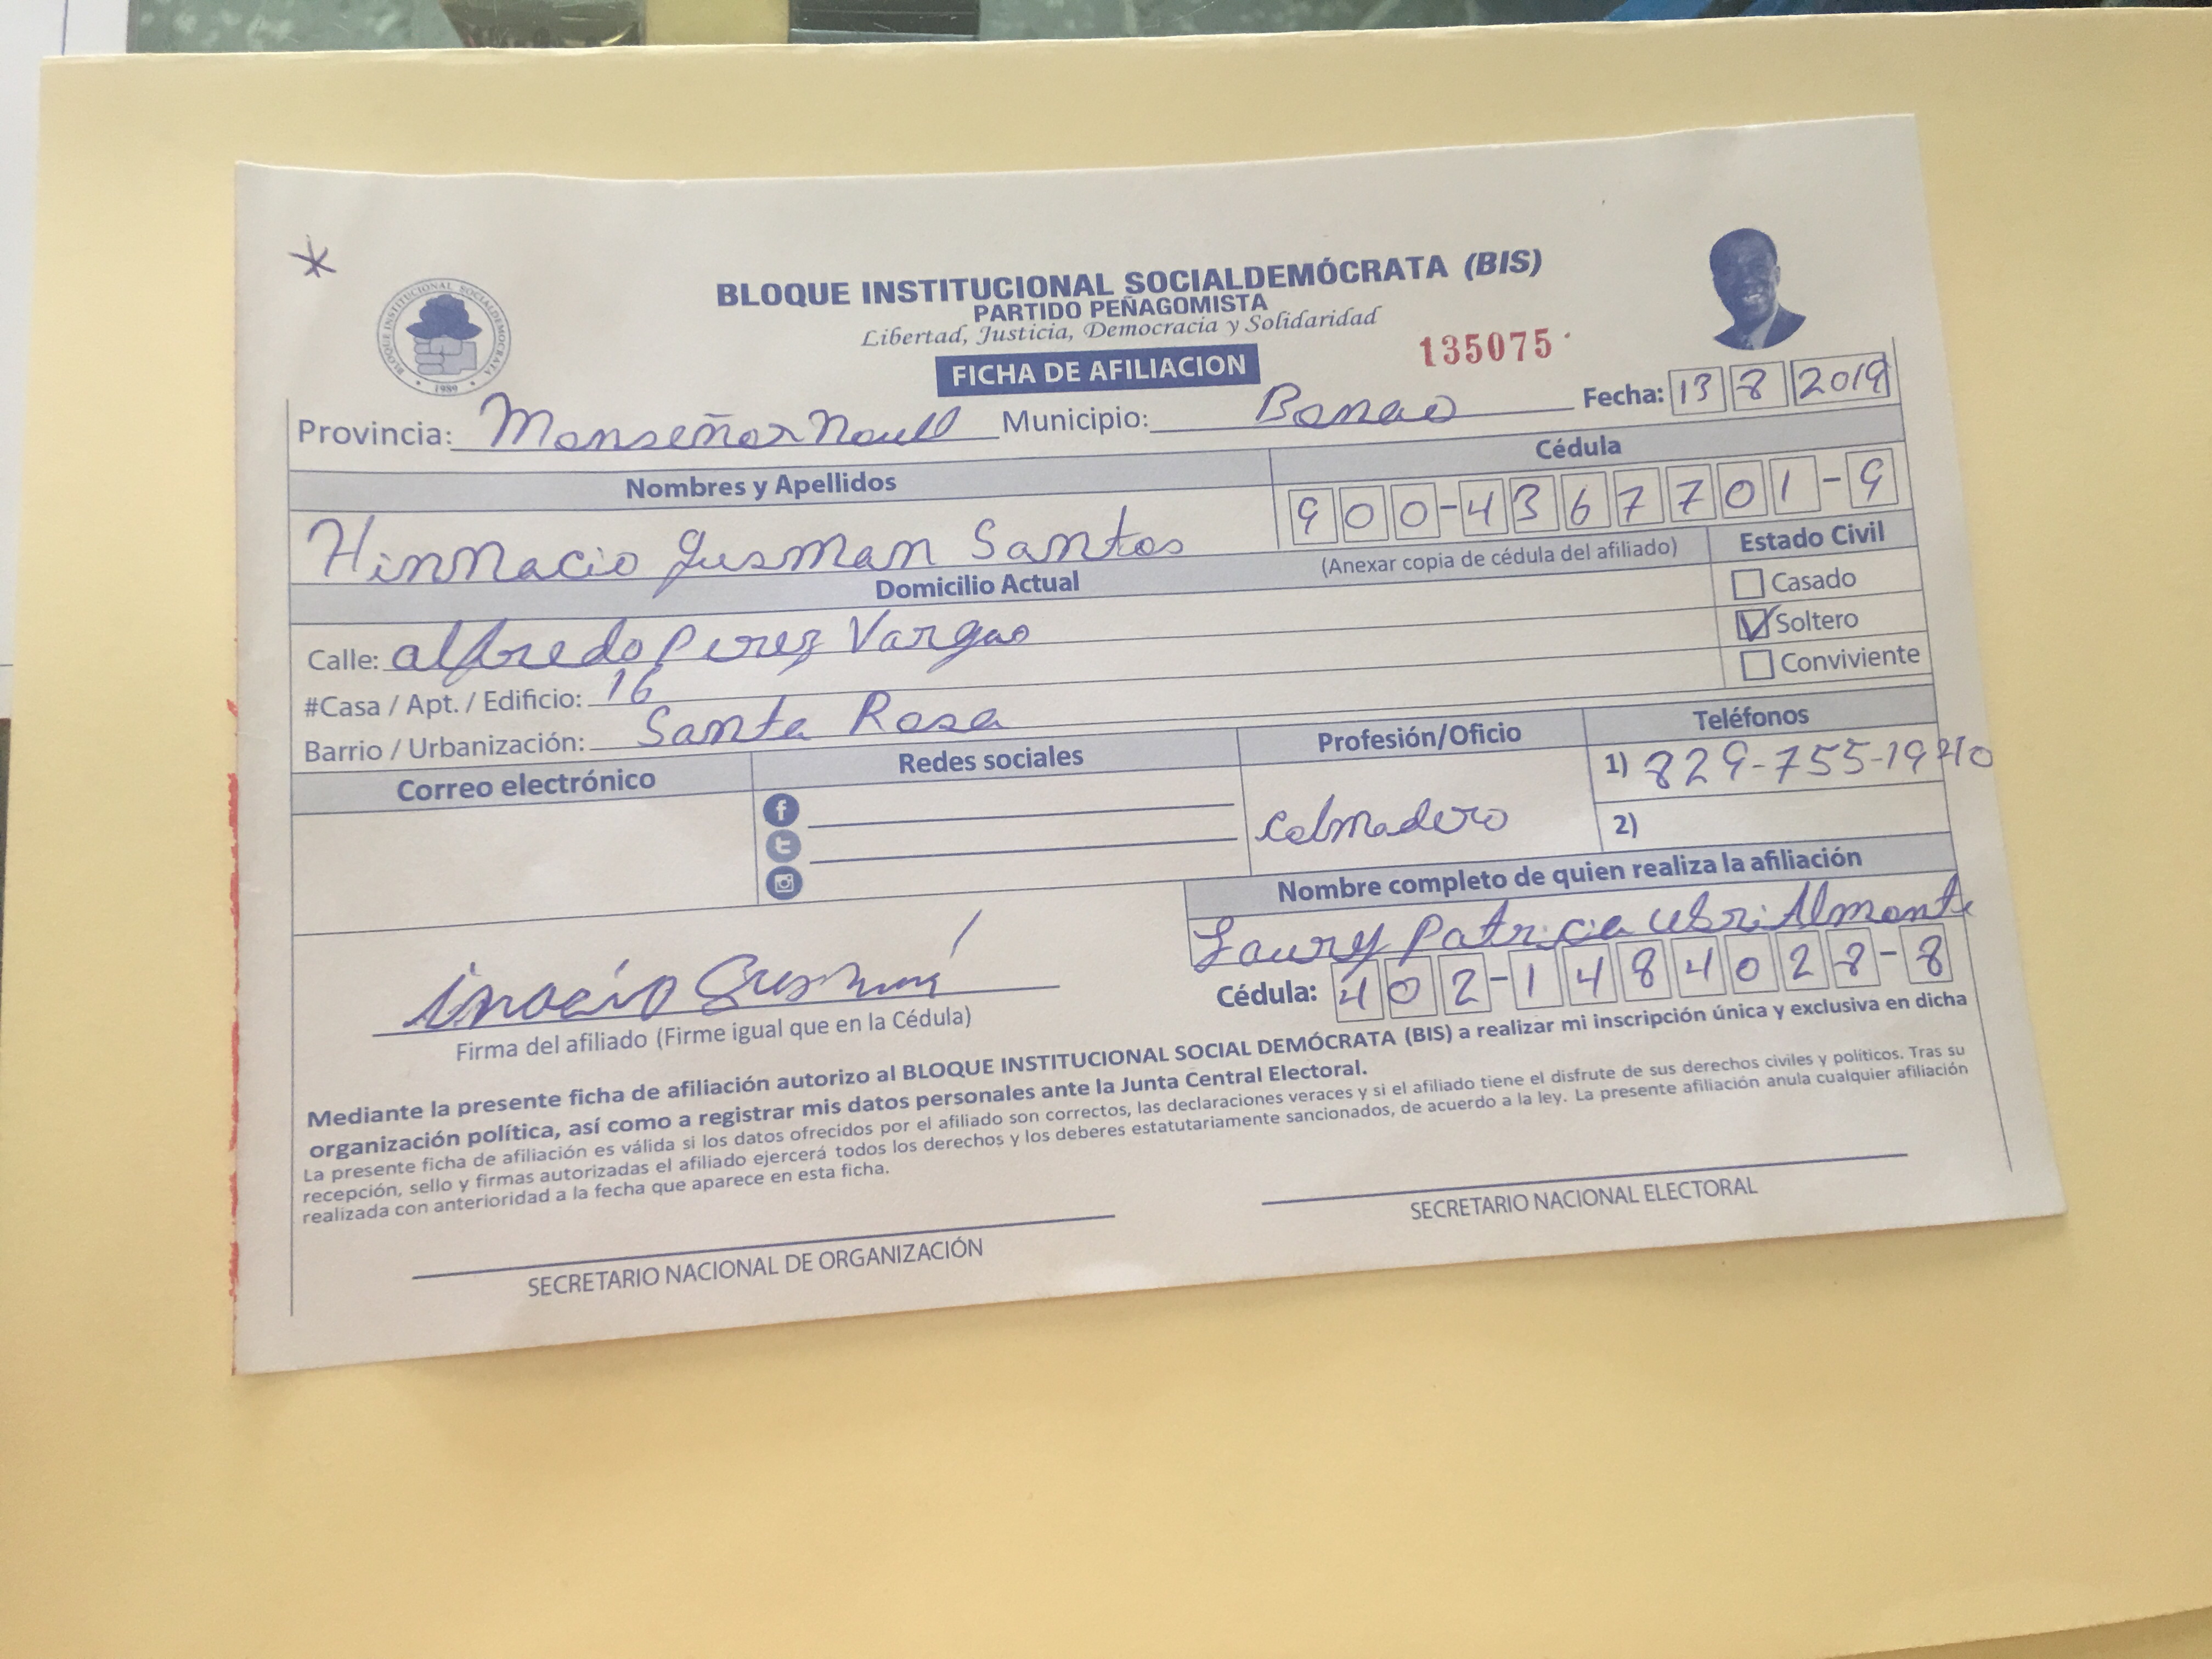 BLOQUE INSTITUCIONAL SOCIALDEMÓCRATA (BIS)
PARTIDO PEÑAGOMISTA
Libertad, Justicia, Democracia y Solidaridad
135075
FICHA DE AFILIACION
BLOQUE INSTITUCIONAL SOCIALDEMOCRATA
1989
Provincia: Monseñor Nouel Municipio: Bonao Fecha: 13 8 2019
Nombres y Apellidos Cédula
Hinnacio Gusman Santos 900-4367701-9
(Anexar copia de cédula del afiliado) Estado Civil
Domicilio Actual Casado
Calle: alfredo Perez Vargas Soltero
#Casa / Apt. / Edificio: 16 Conviviente
Barrio / Urbanización: Santa Rosa
Correo electrónico Redes sociales Profesión/Oficio Teléfonos
1) 829-755-1940
Colmadero 2)
Nombre completo de quien realiza la afiliación
Laury Patricia Ubri Almonte
Cédula: 402-1484028-8
inocio Gusman
Firma del afiliado (Firme igual que en la Cédula)
Mediante la presente ficha de afiliación autorizo al BLOQUE INSTITUCIONAL SOCIAL DEMÓCRATA (BIS) a realizar mi inscripción única y exclusiva en dicha
organización política, así como a registrar mis datos personales ante la Junta Central Electoral.
La presente ficha de afiliación es válida si los datos ofrecidos por el afiliado son correctos, las declaraciones veraces y si el afiliado tiene el disfrute de sus derechos civiles y políticos. Tras su
recepción, sello y firmas autorizadas el afiliado ejercerá todos los derechos y los deberes estatutariamente sancionados, de acuerdo a la ley. La presente afiliación anula cualquier afiliación
realizada con anterioridad a la fecha que aparece en esta ficha.
SECRETARIO NACIONAL DE ORGANIZACIÓN SECRETARIO NACIONAL ELECTORAL